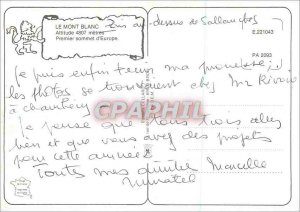 LE MONT BLANC
Altitude 4807 mètres
Premier sommet d'Europe.
au-dessus de Sallanches
E.221043
PA 2093
Je puis enfin tenir ma promesse ;
les photos se trouvaient chez Mr
à
CPARAMA
Je pense que vous trois allez
bien et que vous avez des projets
pour cette année ?
Toutes mes amitiés Marcelle